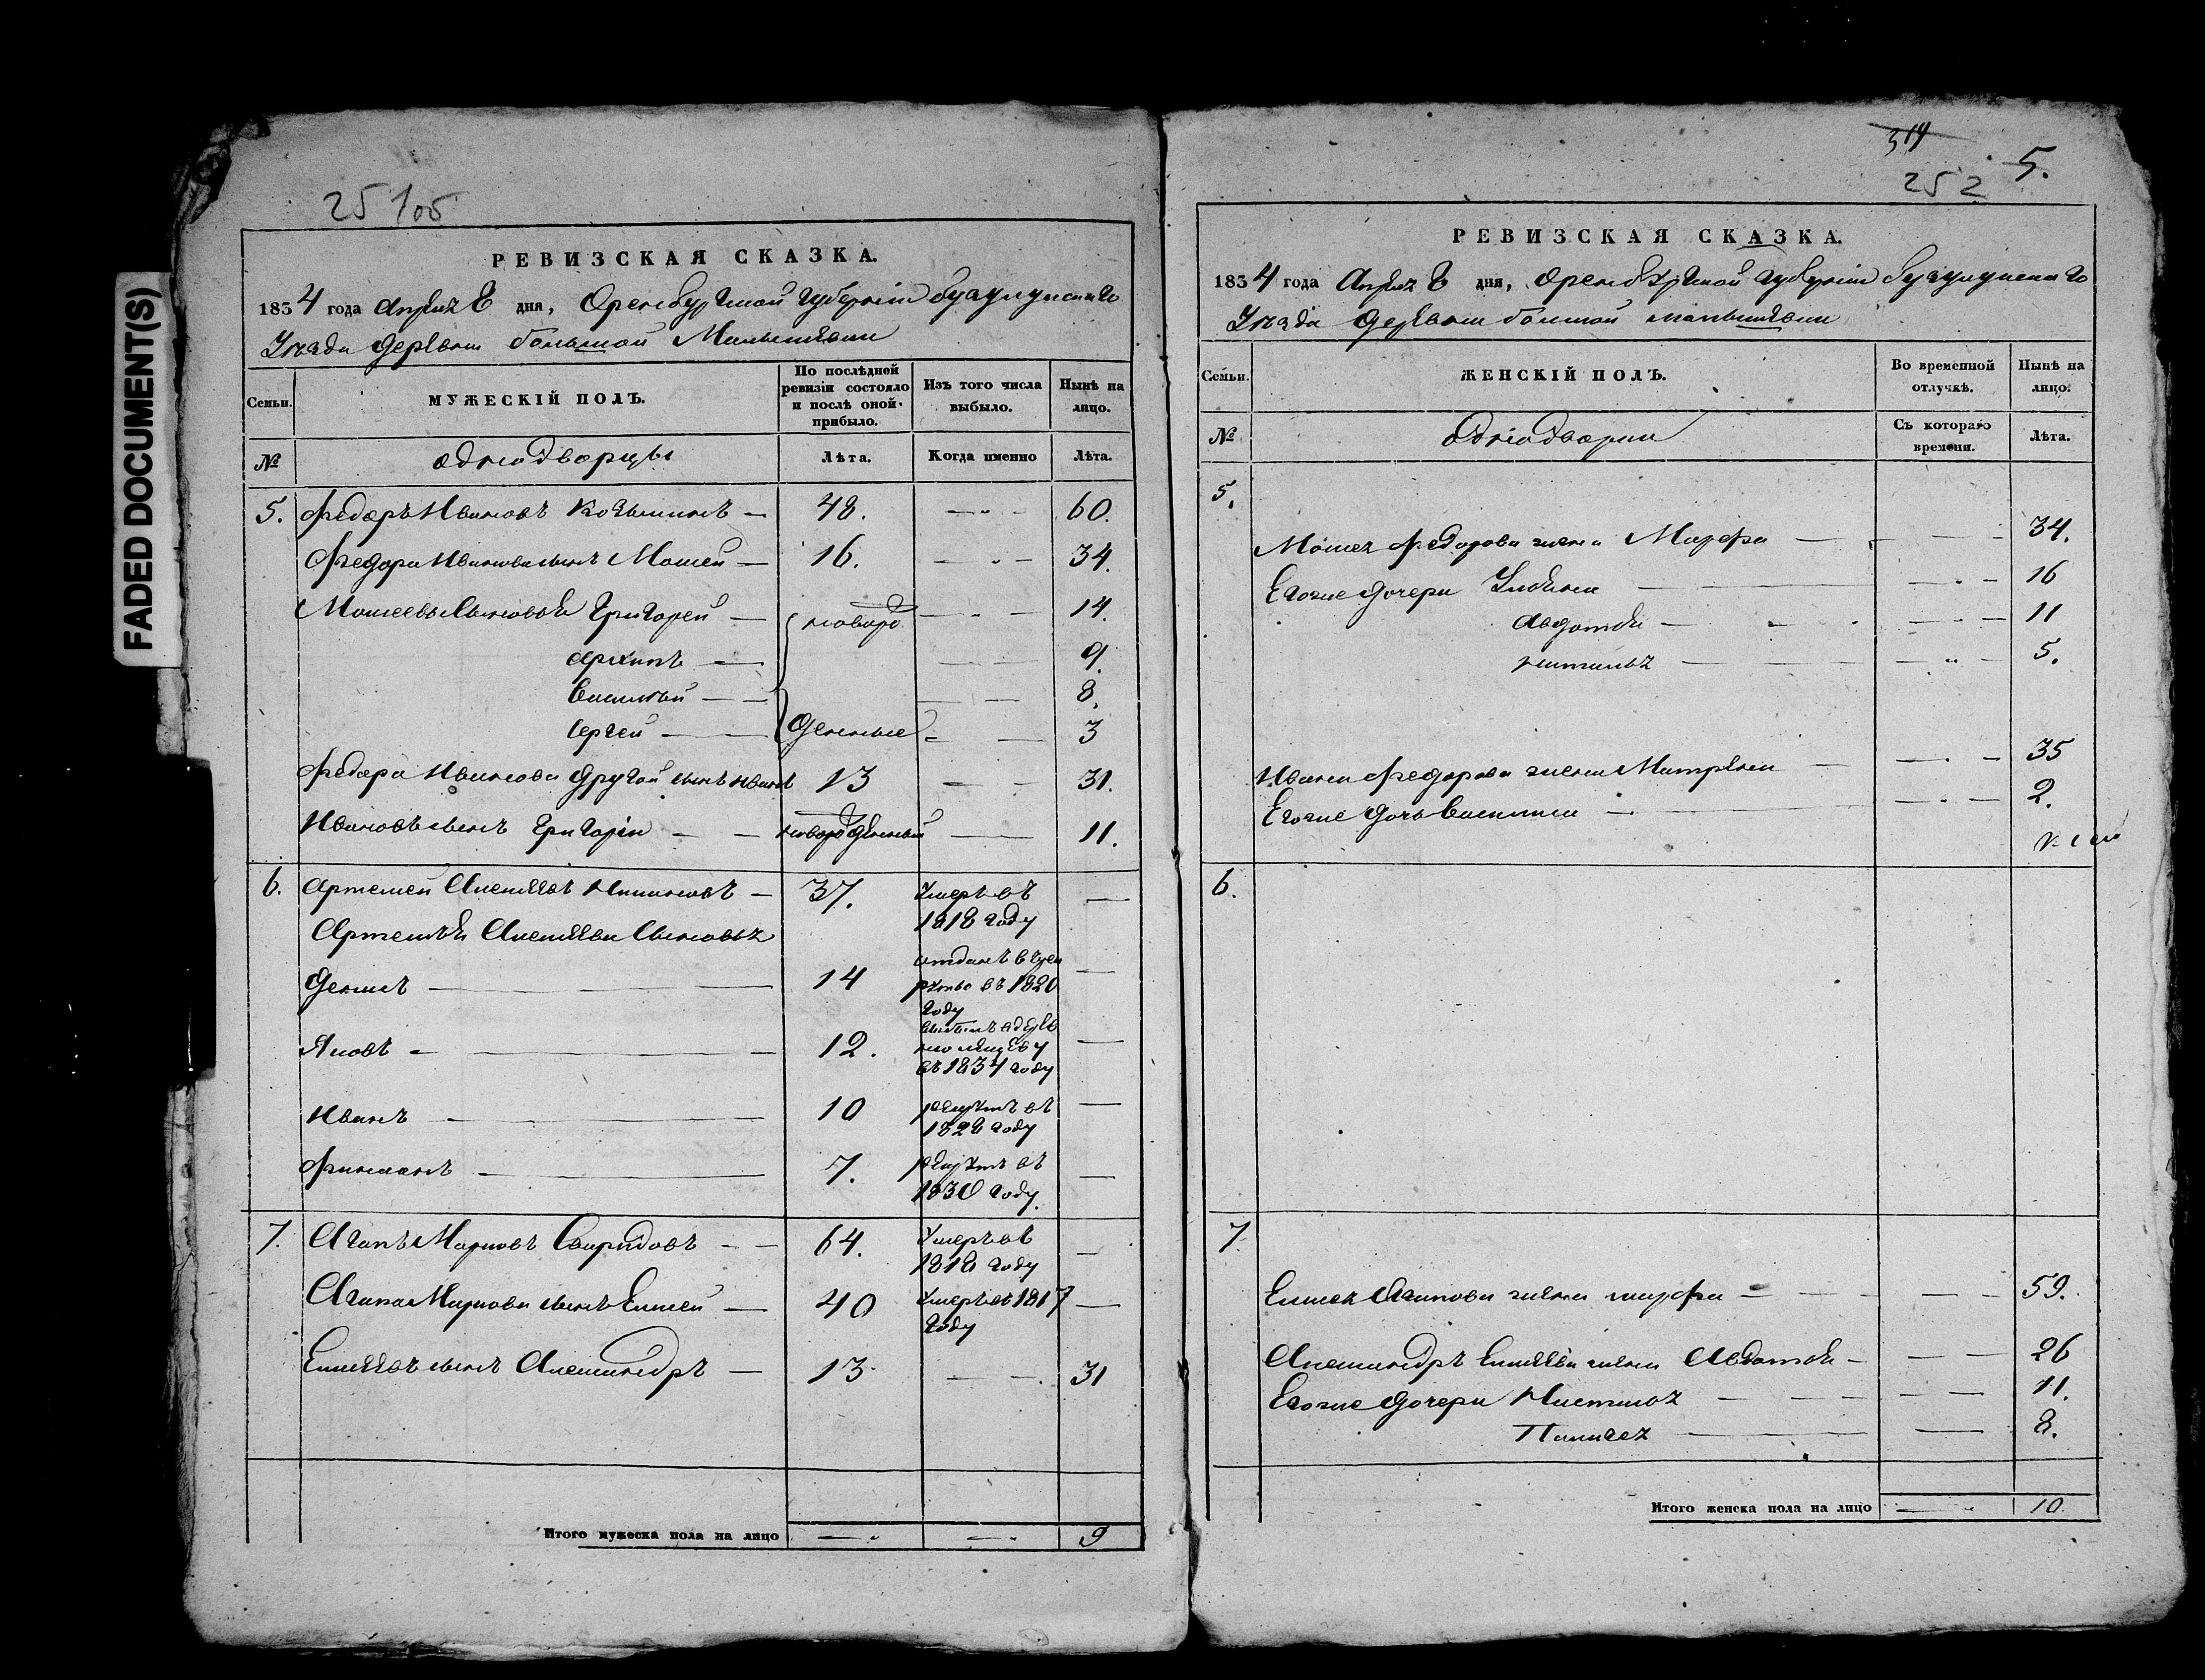 FADED DOCUMENT(S)
25 105
РЕВИЗСКАЯ СКАЗКА.
1854 года Апреля 8 дня, Оренбургской губерніи Бугурусланскаго
Уезда деревни большой
Семьи.
МУЖЕСКІЙ ПОЛЪ.
По послѣдней ревизіи состояло и послѣ оной прибыло.
Изъ того числа выбыло.
Нынѣ на лицо.
№
однодворцы
Лѣта.
Когда именно
Лѣта.
5. Федоръ Ивановъ Козьминъ — 48. — 60.
Федора Иванова сынъ Мосей — 16. — 34.
Мосеевы Сыновья Григорей — новоро — 14.
Архипъ — 9.
Василей — 8.
Сергей — жденные — 3
Федора Иванова другой сынъ Иванъ 13 — 31.
Ивановъ сынъ Григорій — новорожденный — 11.
6. Артемей Алексеевъ — 37. умеръ въ —
1818 году
Артемья Алексеева Сыновья
Денисъ — 14 отданъ в рек —
руты въ 1820
году
Яковъ — 12. —
въ 1834 году
Иванъ — 10 рекрутъ въ —
1828 году
7. рекрутъ въ —
1830 году.
7. Агапъ Марковъ Свиридовъ — 64. умеръ въ —
1818 году
Агапа Маркова сынъ Елисей — 40 умеръ въ 1817 —
году
Елисеевъ сынъ Александръ — 13. — 31
Итого мужеска пола на лицо — 9
314
252 5.
РЕВИЗСКАЯ СКАЗКА.
1854 года Апреля 8 дня, Оренбургской губерніи Бугурусланскаго
Уезда деревни большой
Семьи.
ЖЕНСКІЙ ПОЛЪ.
Во временной отлучкѣ.
Нынѣ на лицо.
№
однодворки
Съ котораго времени.
Лѣта.
5.
Мосея Федорова жена Марфа — 34.
Его же дочери Ульяна — 16
Авдотья — 11
Наталья — 5.
Ивана Федорова жена Матрена — 35
Его же дочь Василиса — 2.
6.
7.
Елисея Агапова жена марфа — 59.
Александръ Елисеева жена Авдотья — 26
Его же дочери Настасья — 11.
Палагея — 8.
Итого женска пола на лицо — 10.